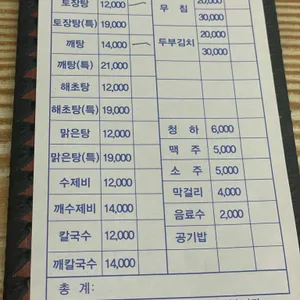 토장탕 12,000
토장탕(특) 19,000
깨탕 14,000
깨탕(특) 21,000
해초탕 12,000
해초탕(특) 19,000
맑은탕 12,000
맑은탕(특) 19,000
수제비 12,000
깨수제비 14,000
칼국수 12,000
깨칼국수 14,000
무침 20,000
30,000
두부김치 20,000
30,000
청하 6,000
맥주 5,000
소주 5,000
막걸리 4,000
음료수 2,000
공기밥
총 계: